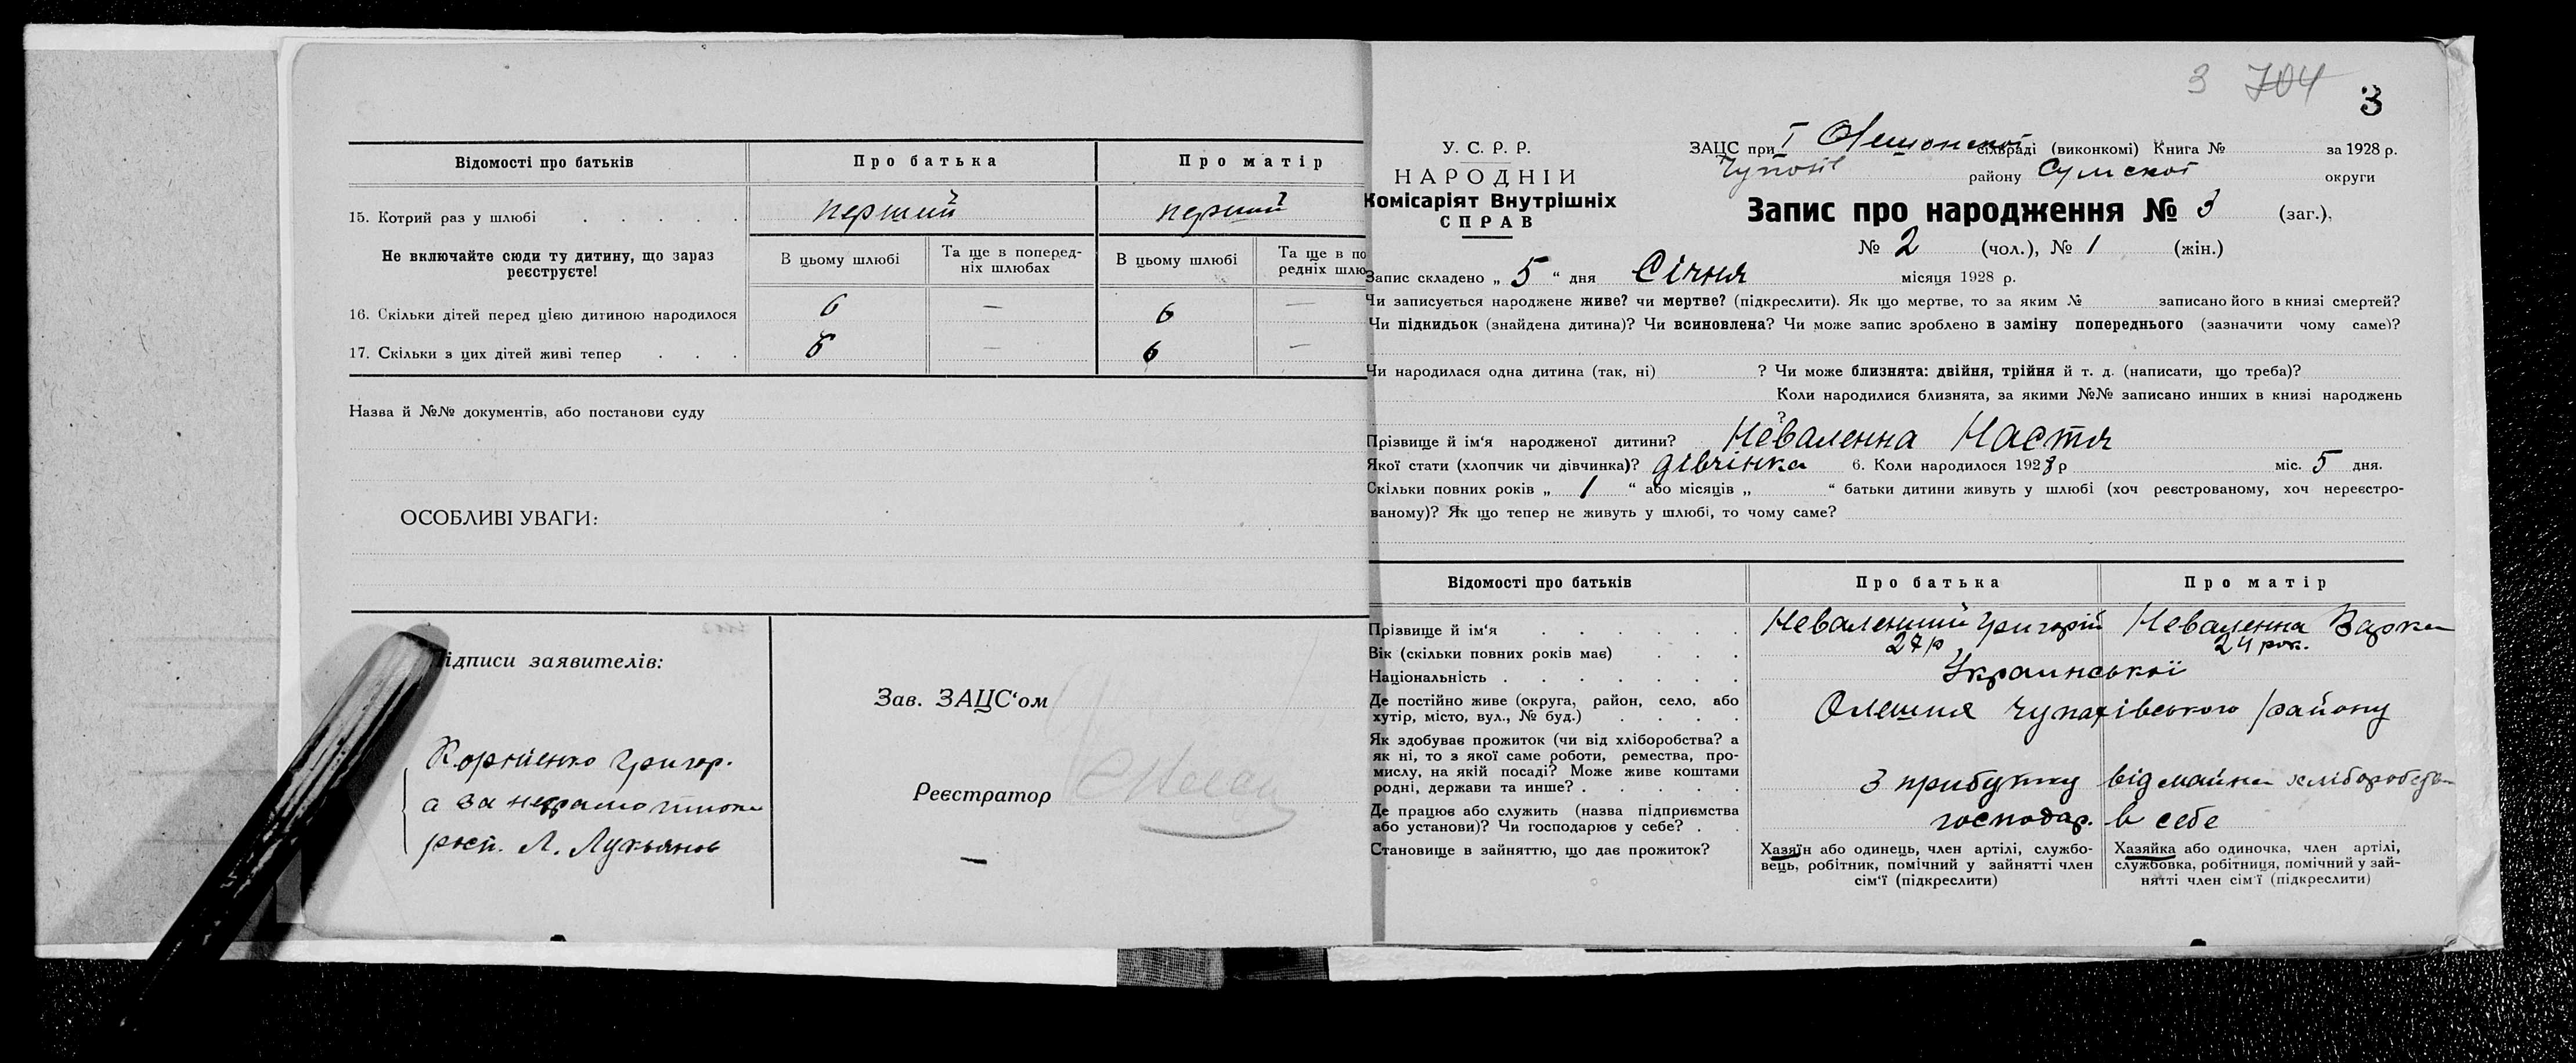 Відомості про батьків Про батька Про матір
15. Котрий раз у шлюбі перший перший
Не включайте сюди ту дитину, що зараз реєструєте!
В цьому шлюбі Та ще в поперед- В цьому шлюбі Та ще в по
ніх шлюбах редніх шлю
16. Скільки дітей перед цією дитиною народилося 6 — 6 —
17. Скільки з цих дітей живі тепер 6 — 6 —
Назва й №№ документів, або постанови суду
ОСОБЛИВІ УВАГИ:
ідписи заявителів:
Зав. ЗАЦС‘ом
Корнієнко Григор.
а за неграмотного
росп. Л. Лукьянов
Реєстратор
—
3 704 3
У. С. Р. Р.
НАРОДНІЙ
Комісаріят Внутрішніх
СПРАВ
ЗАЦС при І сільраді (виконкомі) Книга № за 1928 р.
району Сумської округи
Запис про народження № 3 (заг.),
№ 2 (чол.), № 1 (жін.)
Запис складено „ 5 “ дня Січня місяця 1928 р.
Чи записується народжене живе? чи мертве? (підкреслити). Як що мертве, то за яким № записано його в книзі смертей?
Чи підкидьок (знайдена дитина)? Чи всиновлена? Чи може запис зроблено в заміну попереднього (зазначити чому саме)?
Чи народилася одна дитина (так, ні) ? Чи може близнята: двійня, трійня й т. д. (написати, що треба)?
Коли народилися близнята, за якими №№ записано инших в книзі народжень
?
Прізвище й ім‘я народженої дитини? Неваленна Настя
Якої стати (хлопчик чи дівчинка)? дівчінка 6. Коли народилося 1928 р міс. 5 дня.
Скільки повних років „ 1 “ або місяців „ “ батьки дитини живуть у шлюбі (хоч реєстрованому, хоч нереєстро-
ваному)? Як що тепер не живуть у шлюбі, то чому саме?
Відомості про батьків Про батька Про матір
Прізвище й ім‘я Григорій Неваленна Варка
Вік (скільки повних років має) 27 р 24 рок.
Національність Української
Де постійно живе (округа, район, село, або
хутір, місто, вул., № буд.) Олешня Чупахівського району
Як здобуває прожиток (чи від хліборобства? а
як ні, то з якої саме роботи, ремества, про-
мислу, на якій посаді? Може живе коштами
родні, держави та инше? З прибутку від майна
Де працює або служить (назва підприємства
або установи)? Чи господарює у себе? господар. в себе
Становище в зайняттю, що дає прожиток?
Хазяїн або одинець, член артілі, службо-
вець, робітник, помічний у зайнятті член
сім‘ї (підкреслити)
Хазяйка або одиночка, член артілі,
службовка, робітниця, помічний у зай-
нятті член сім‘ї (підкреслити)